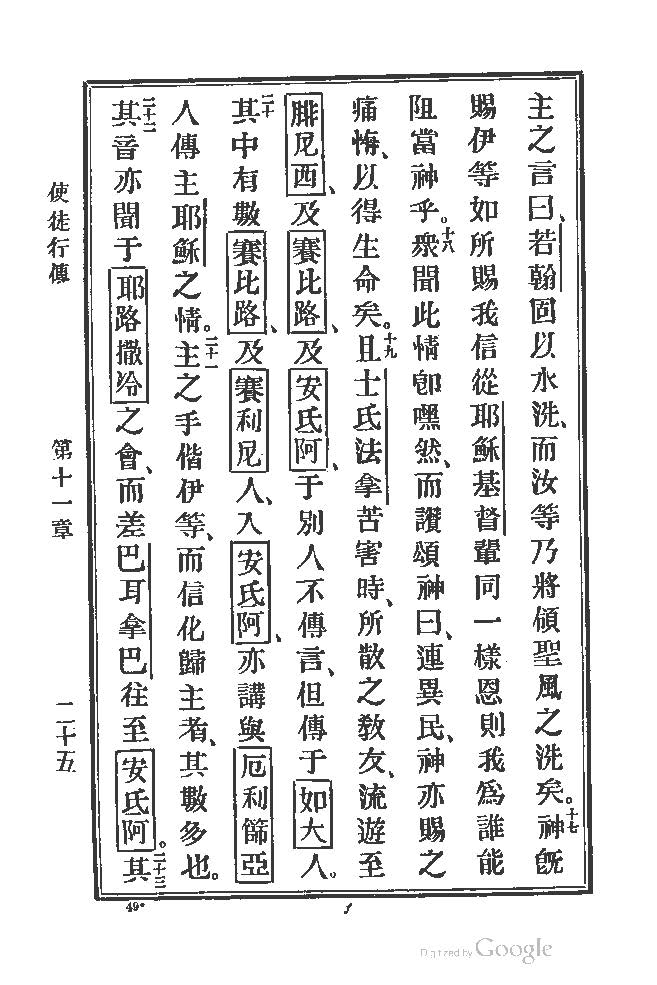 主之言曰、若翰固以水洗、而汝等乃將領聖風之洗矣。十七神旣
賜伊等如所賜我信從耶穌基督輩同一樣恩則我爲誰能
阻當神乎。十八衆聞此情卽嘿然、而讚頌神曰、連異民、神亦賜之
痛悔、以得生命矣。十九且士氐法拿苦害時、所散之敎友、流遊至
腓尼西、及賽比路、及安氐阿、于別人不傳言、但傳于如大人。
二十其中有數賽比路、及賽利尼人、入安氐阿、亦講與厄利篩亞
人傳主耶穌之情。二十一主之手偕伊等、而信化歸主者、其數多也。
二十二其音亦聞于耶路撒冷之會、而差巴耳拿巴往至安氐阿。二十三其
使徒行傳
第十一章
二十五
49*
Digitized by Google